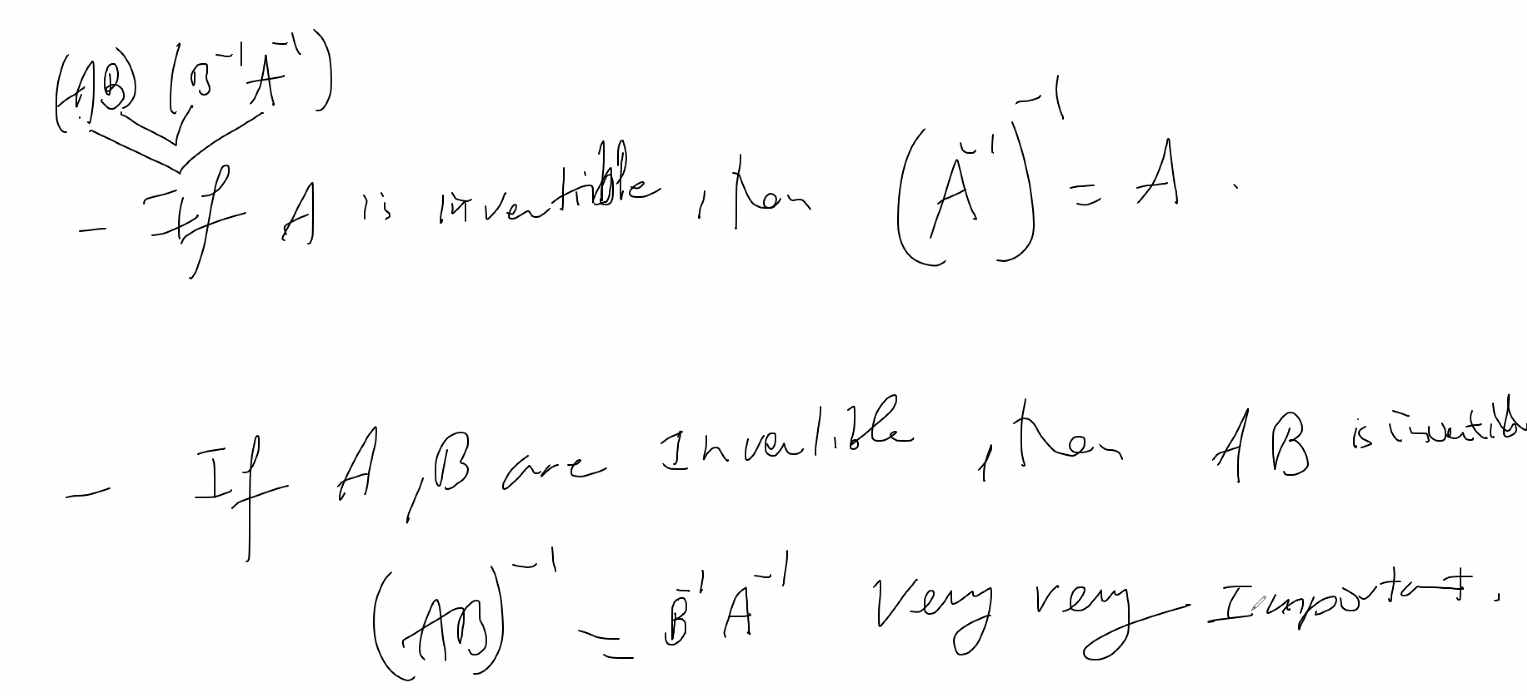 (AB) (B⁻¹A⁻¹)
- If A is invertible, then (A⁻¹)⁻¹ = A.
- If A, B are Invertible, then AB is invertibl
(AB)⁻¹ = B⁻¹A⁻¹ Very very Important.